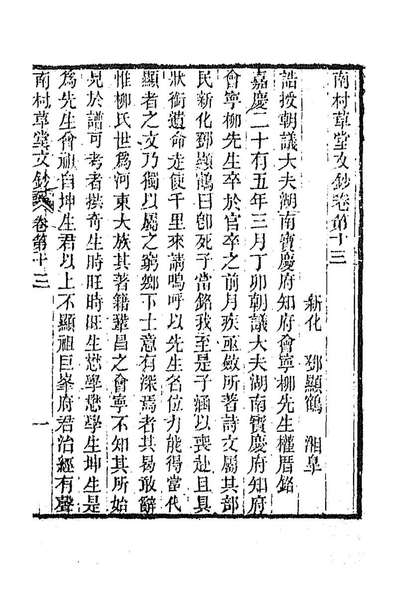 南村草堂文鈔卷第十三
新化 鄧顯鶴 湘皋
誥授朝議大夫湖南寶慶府知府會寧柳先生權厝銘
嘉慶二十有五年三月丁卯朝議大夫湖南寶慶府知府
會寧柳先生卒於官卒之前月疾亟斂所著詩文屬其部
民新化鄧顯鶴曰卽死子當銘我至是子涵以喪赴且具
狀銜遺命走使千里來請嗚呼以先生名位力能得當代
顯者之文乃獨以屬之窮鄉下士意有深焉者其曷敢辭
惟柳氏世爲河東大族其著籍鞏昌之會寧不知其所始
見於譜可考者撲奇生時旺時旺生懋學懋學生坤生是
爲先生曾祖自坤生君以上不顯祖巨峯府君治經有聲
南村草堂文鈔 卷第十三 一